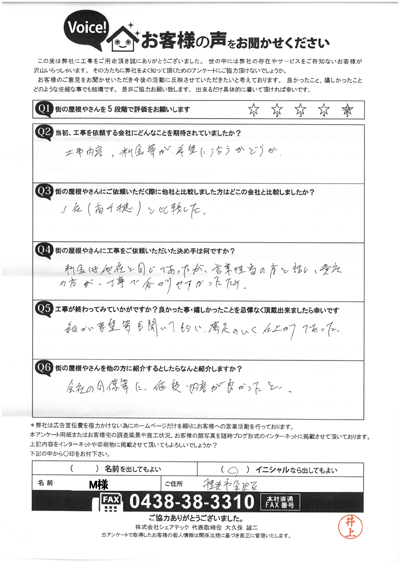 Voice!
お客様の声をお聞かせください
この度は弊社に工事をご用命頂き誠にありがとうございました。世の中には弊社の存在やサービスをご存知ないお客様が
沢山いらっしゃいます。その方たちに弊社をよく知って頂くためのアンケートにご協力頂けないでしょうか。
お客様のご意見をお聞かせいただき今後の活動に反映させていただきたいと考えております。良かったこと、嬉しかったこと
どのような些細な事でも結構です。是非ご協力お願い致します。出来るだけ具体的に書いて頂ければ幸いです。
Q1 街の屋根やさんを5段階で評価をお願いします
☆ ☆ ☆ ☆ ☆
Q2 当初、工事を依頼する会社にどんなことを期待されていましたか？
工事内容、料金等が希望にあうかどうか。
Q3 街の屋根やさんにご依頼いただく際に他社と比較しました方はどこの会社と比較しましたか？
と比較した。
Q4 街の屋根やさんに工事をご依頼いただいた決め手は何ですか？
料金は他社と同じであったが、営業担当の方と話し、貴社
の方が、丁寧で分かりやすかったため。
Q5 工事が終わってみていかがですか？良かった事・嬉しかったことを忌憚なく頂戴出来ましたら幸いです
細かい要望等も聞いてもらい、満足のいく仕上がりであった。
Q6 街の屋根やさんを他の方に紹介するとしたらなんと紹介しますか？
会社の同僚等に、価格・内容が良かったと。
＊弊社は広告宣伝費を極力かけない為にホームページだけを頼りにお客様への営業活動を行っております。
本アンケート用紙またはお客様宅の調査風景や施工状況、お客様の顔写真を随時ブログ形式のインターネットに掲載させて頂いております。
上記内容をインターネットや印刷物に掲載させて頂いてもよろしいでしょうか？
下記の中から〇印をお付下さい。
（ ）名前を出してもよい （〇）イニシャルなら出してもよい
名前 M様 ご住所
FAX 0438-38-3310 本社直通 FAX番号
ご協力ありがとうございました。
株式会社シェアテック 代表取締役 大久保 誠二
当アンケートで取得したお客様の個人情報は関係法規に基づき厳正に管理いたします。
井上